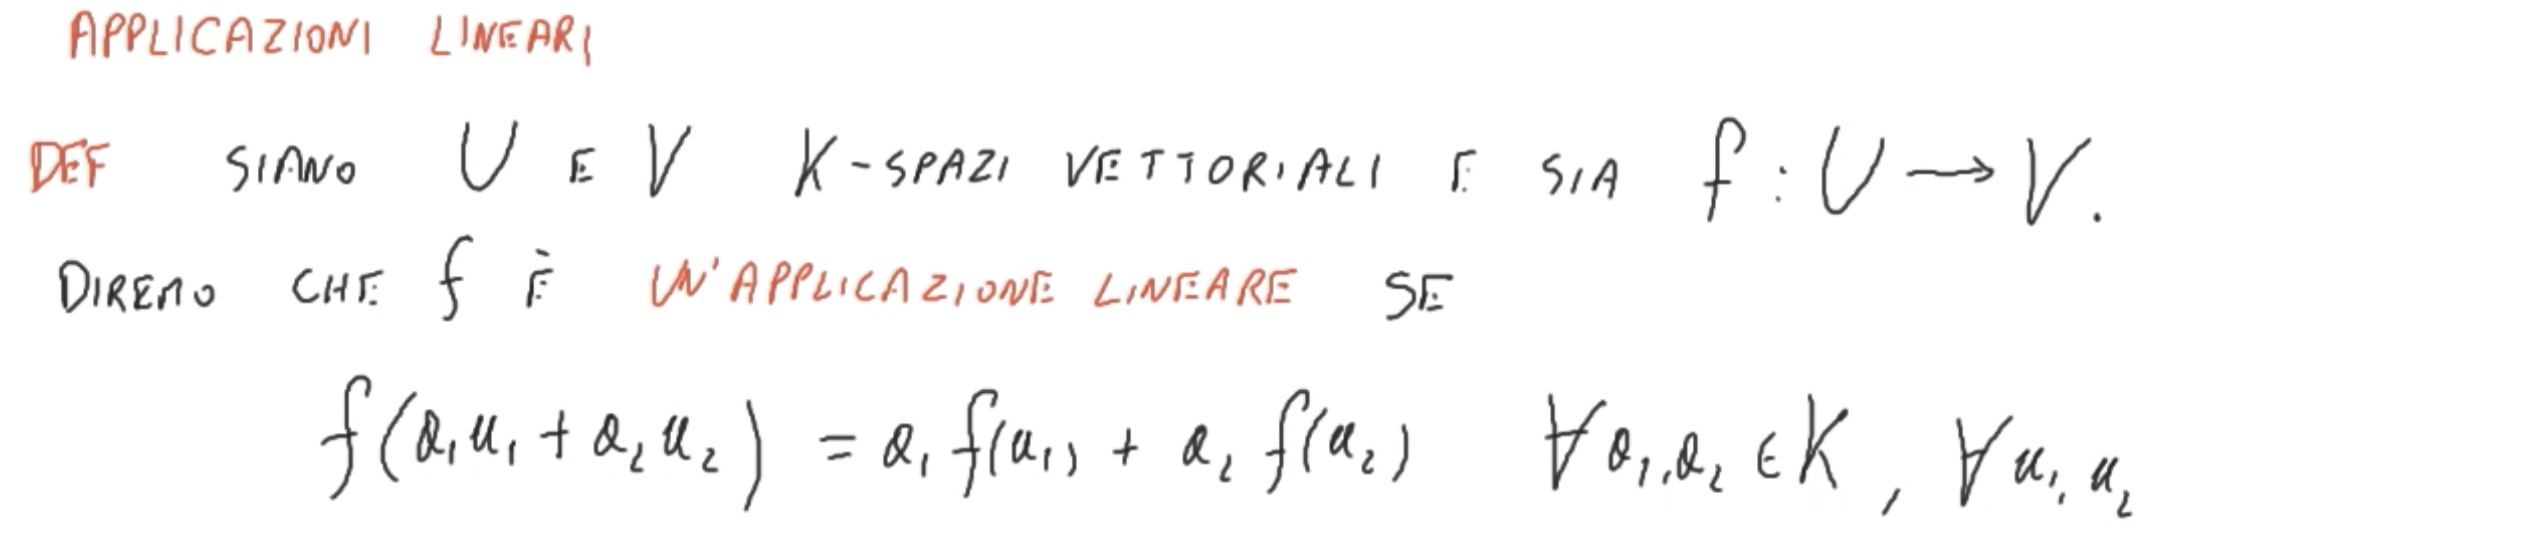 APPLICAZIONI LINEARI
DEF SIANO U E V K-SPAZI VETTORIALI E SIA f : U → V.
DIREMO CHE f È UN'APPLICAZIONE LINEARE SE
f(a₁u₁ + a₂u₂) = a₁ f(u₁) + a₂ f(u₂) ∀ a₁, a₂ ∈ K, ∀ u₁, u₂